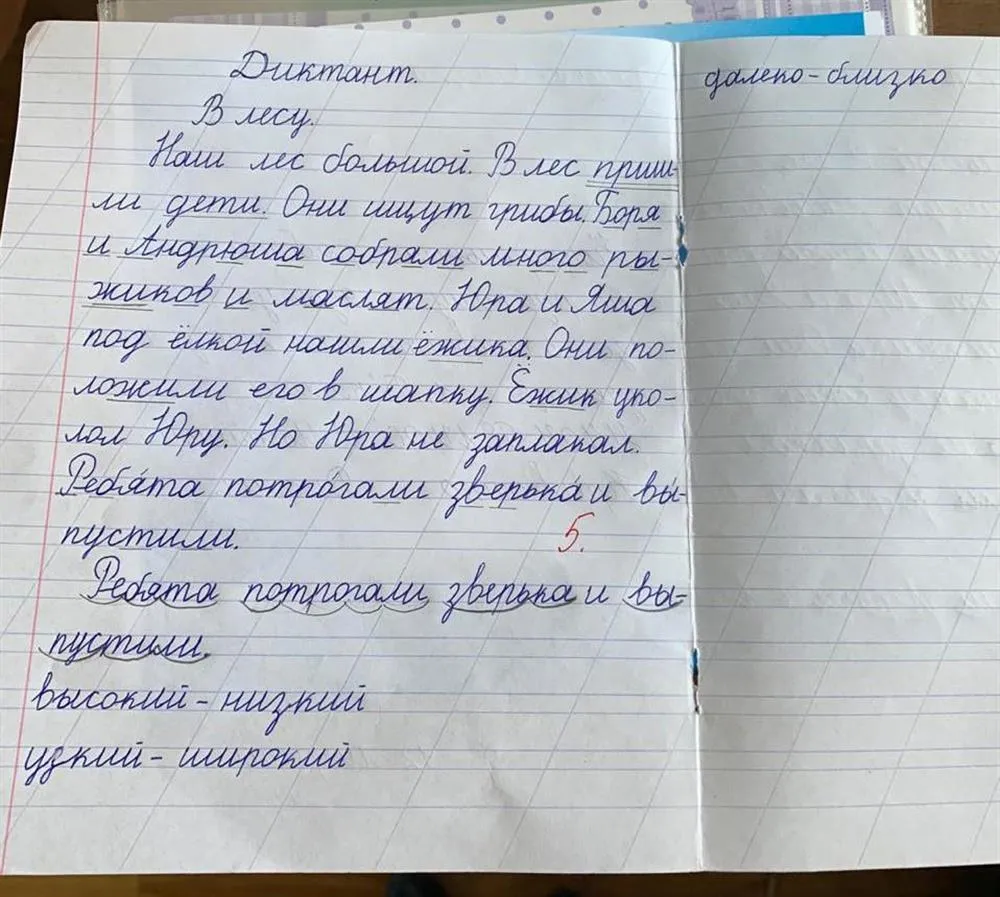 Диктант.
В лесу.
Наш лес большой. В лес приш-
ли дети. Они ищут грибы. Боря
и Андрюша собрали много ры-
жиков и маслят. Юра и Яша
под ёлкой нашли ёжика. Они по-
ложили его в шапку. Ёжик уко-
лол Юру. Но Юра не заплакал.
Ребя́та потро́гали зверька́ и вы́-
пустили.
5.
Ребята потрогали зверька и вы-
пустили.
высокий - низкий
узкий - широкий
далеко - близко